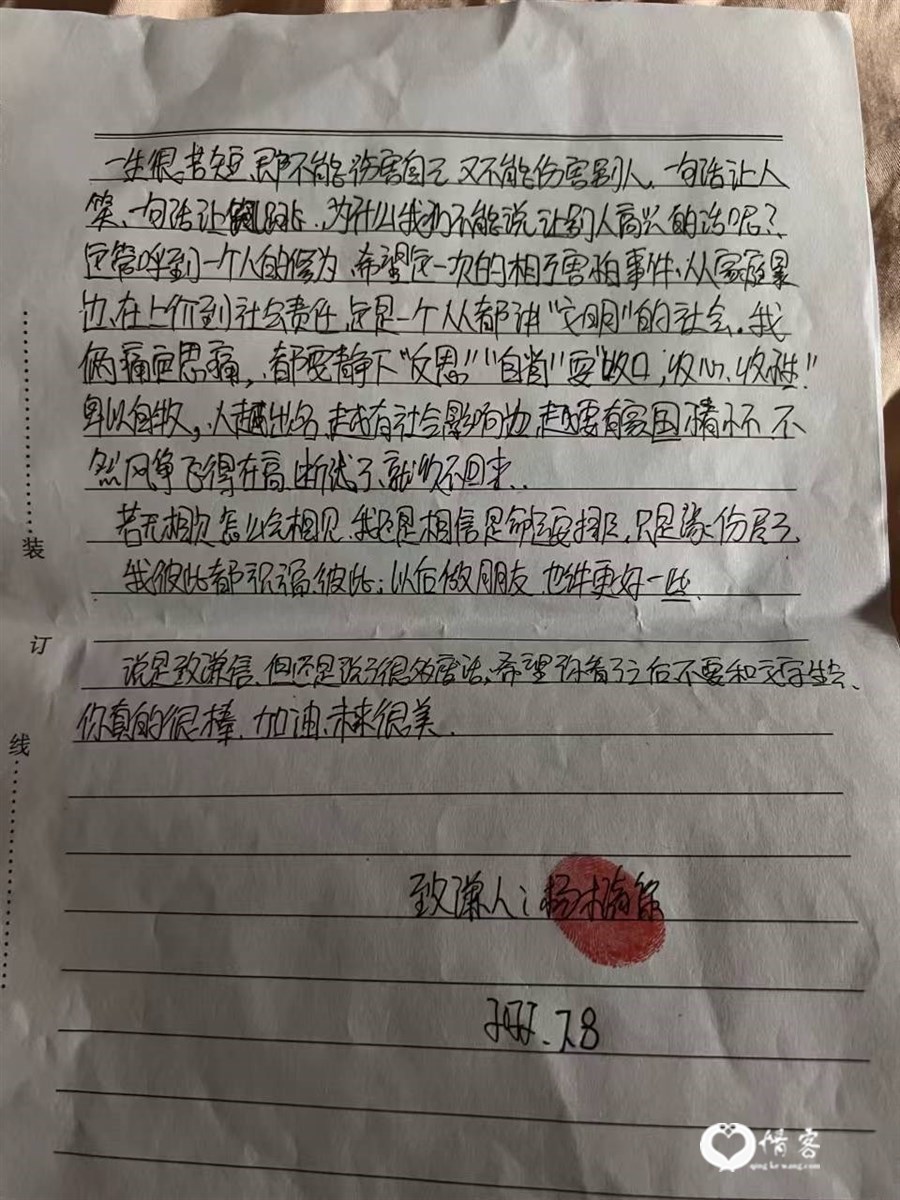 一生很苦短,即不能伤害自己 又不能伤害别人,一句话让人
笑、一句话让人跳,为什么我们不能说让别人高兴的话呢?
这管呼到一个人的修为、希望这一次的相互害怕事件、从家庭暴
也、在上价到社会责任,这是一个人人都讲“文明”的社会。我
俩痛定思痛,都要静下“反思”“自省”要“收口,收心、收性”!
卑以自牧,人越出名、越有社会影响力 越要有家国情怀 不
然风筝飞得在高,断线了、就收不回来..
若无相欠 怎么会相见、我还是相信是命运安排,只是缘份尽了,
我彼此都祝福彼此;以后做朋友 也许更好一些.
说是致谦信、但还是说了很多废话,希望你看了之后不要和文字生气、
你真的很棒、加油、未来很美.
致谦人:
7.8
装
订
线
情客
qingkewang.com